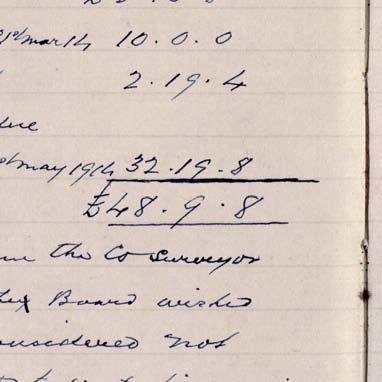 March 10.0.0
2.19.4
due
May 1914 32.19.8
£48.9.8
the Co Surveyor
Board wished
considered not